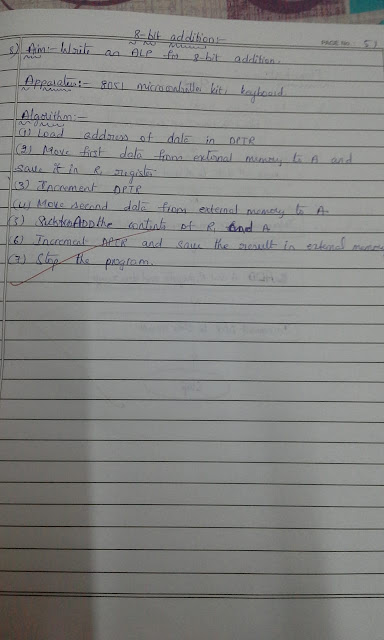 8-bit addition:-
PAGE NO. 51
5) Aim:- Write an ALP for 8-bit addition.
Apparatus:- 8051 microcontroller kit, keyboard
Algorithm:-
(1) Load address of data in DPTR
(2) Move first data from external memory to A and
save it in R, register
(3) Increment DPTR
(4) Move second data from external memory to A.
(5) Add the contents of R, and A
(6) Increment DPTR and save the result in external memory
(7) Stop the program.